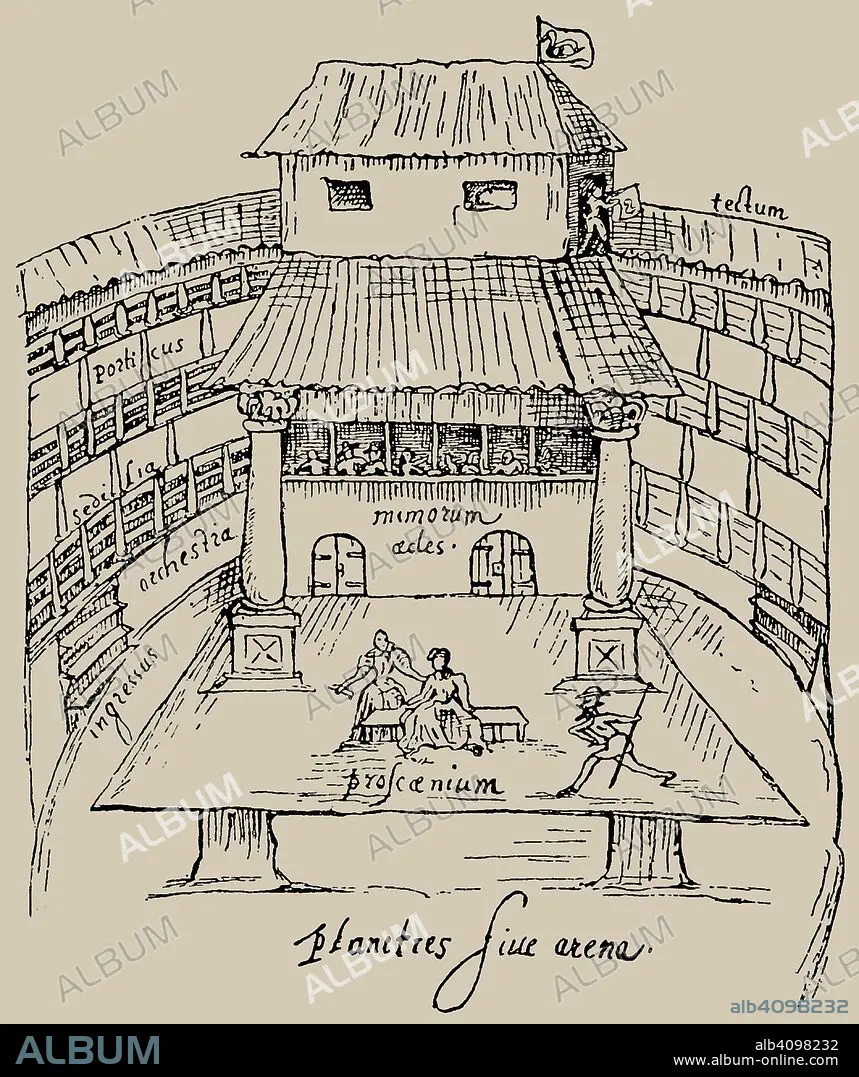 tectum
porticus
sedilia
orchestra
mimorum
ædes.
ingressus
proscænium
planities sive arena.
ALBUM
alb4098232
ALBUM
alb4098232
www.album-online.com